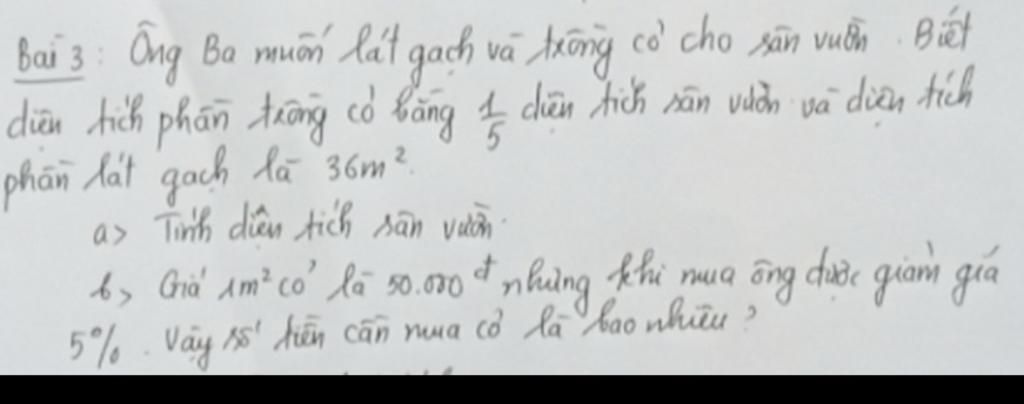 Bài 3: Ông Ba muốn lát gạch và trồng cỏ cho sân vườn. Biết
diện tích phần trồng cỏ bằng 1/5 diện tích sân vườn và diện tích
phần lát gạch là 36m².
a> Tính diện tích sân vườn.
b> Giá 1m² cỏ là 50.000đ nhưng khi mua ông được giảm giá
5%. Vậy số tiền cần mua cỏ là bao nhiêu?